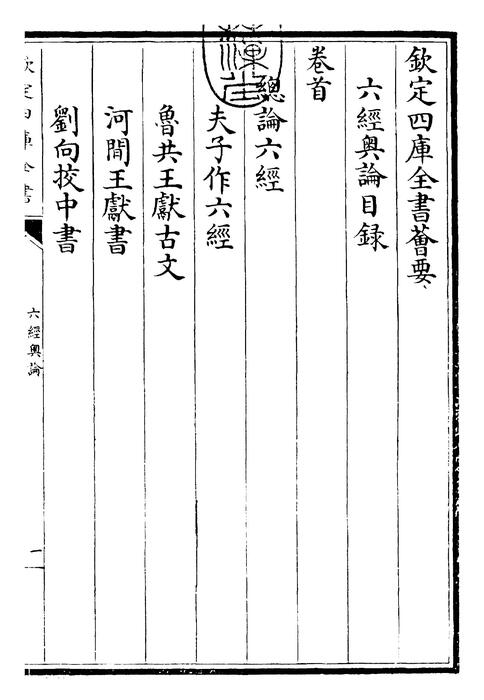 欽定四庫全書薈要
六經奧論目録
卷首
總論六經
夫子作六經
魯共王獻古文
河間王獻書
劉向挍中書
欽定四庫全書
六經奧論
一